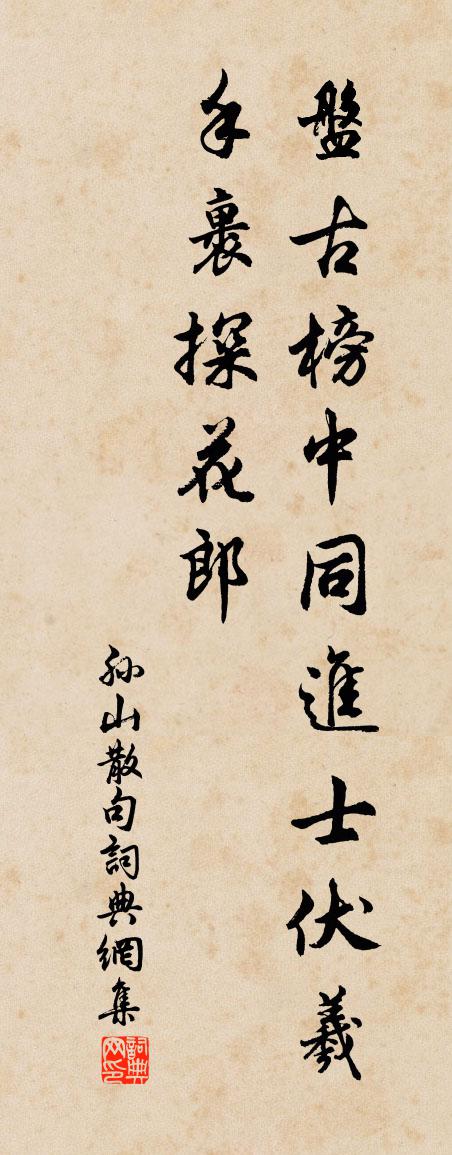 盤古榜中同進士伏羲
手裏探花郎
孫山散句詞典網集
詞典网印